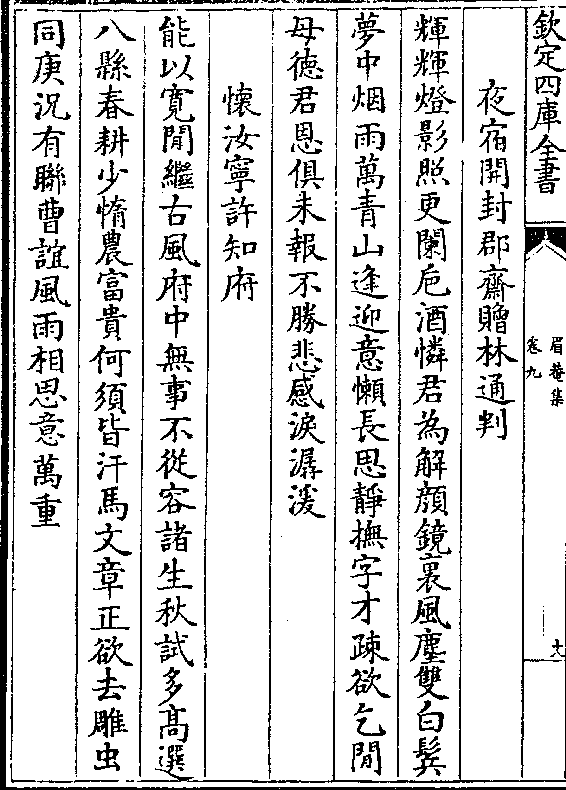 欽定四庫全書
眉菴集
卷九
十八
夜宿開封郡齋贈林通判
輝輝燈影照更闌巵酒憐君為解顔鏡裏風塵雙白鬂
夢中烟雨萬青山逢迎意懶長思靜撫字才疎欲乞閒
母徳君恩俱未報不勝悲感淚潺湲
懷汝寧許知府
能以寛閒繼古風府中無事不從容諸生秋試多高選
八縣春耕少惰農富貴何須皆汗馬文章正欲去雕虫
同庚况有聯曹誼風雨相思意萬重